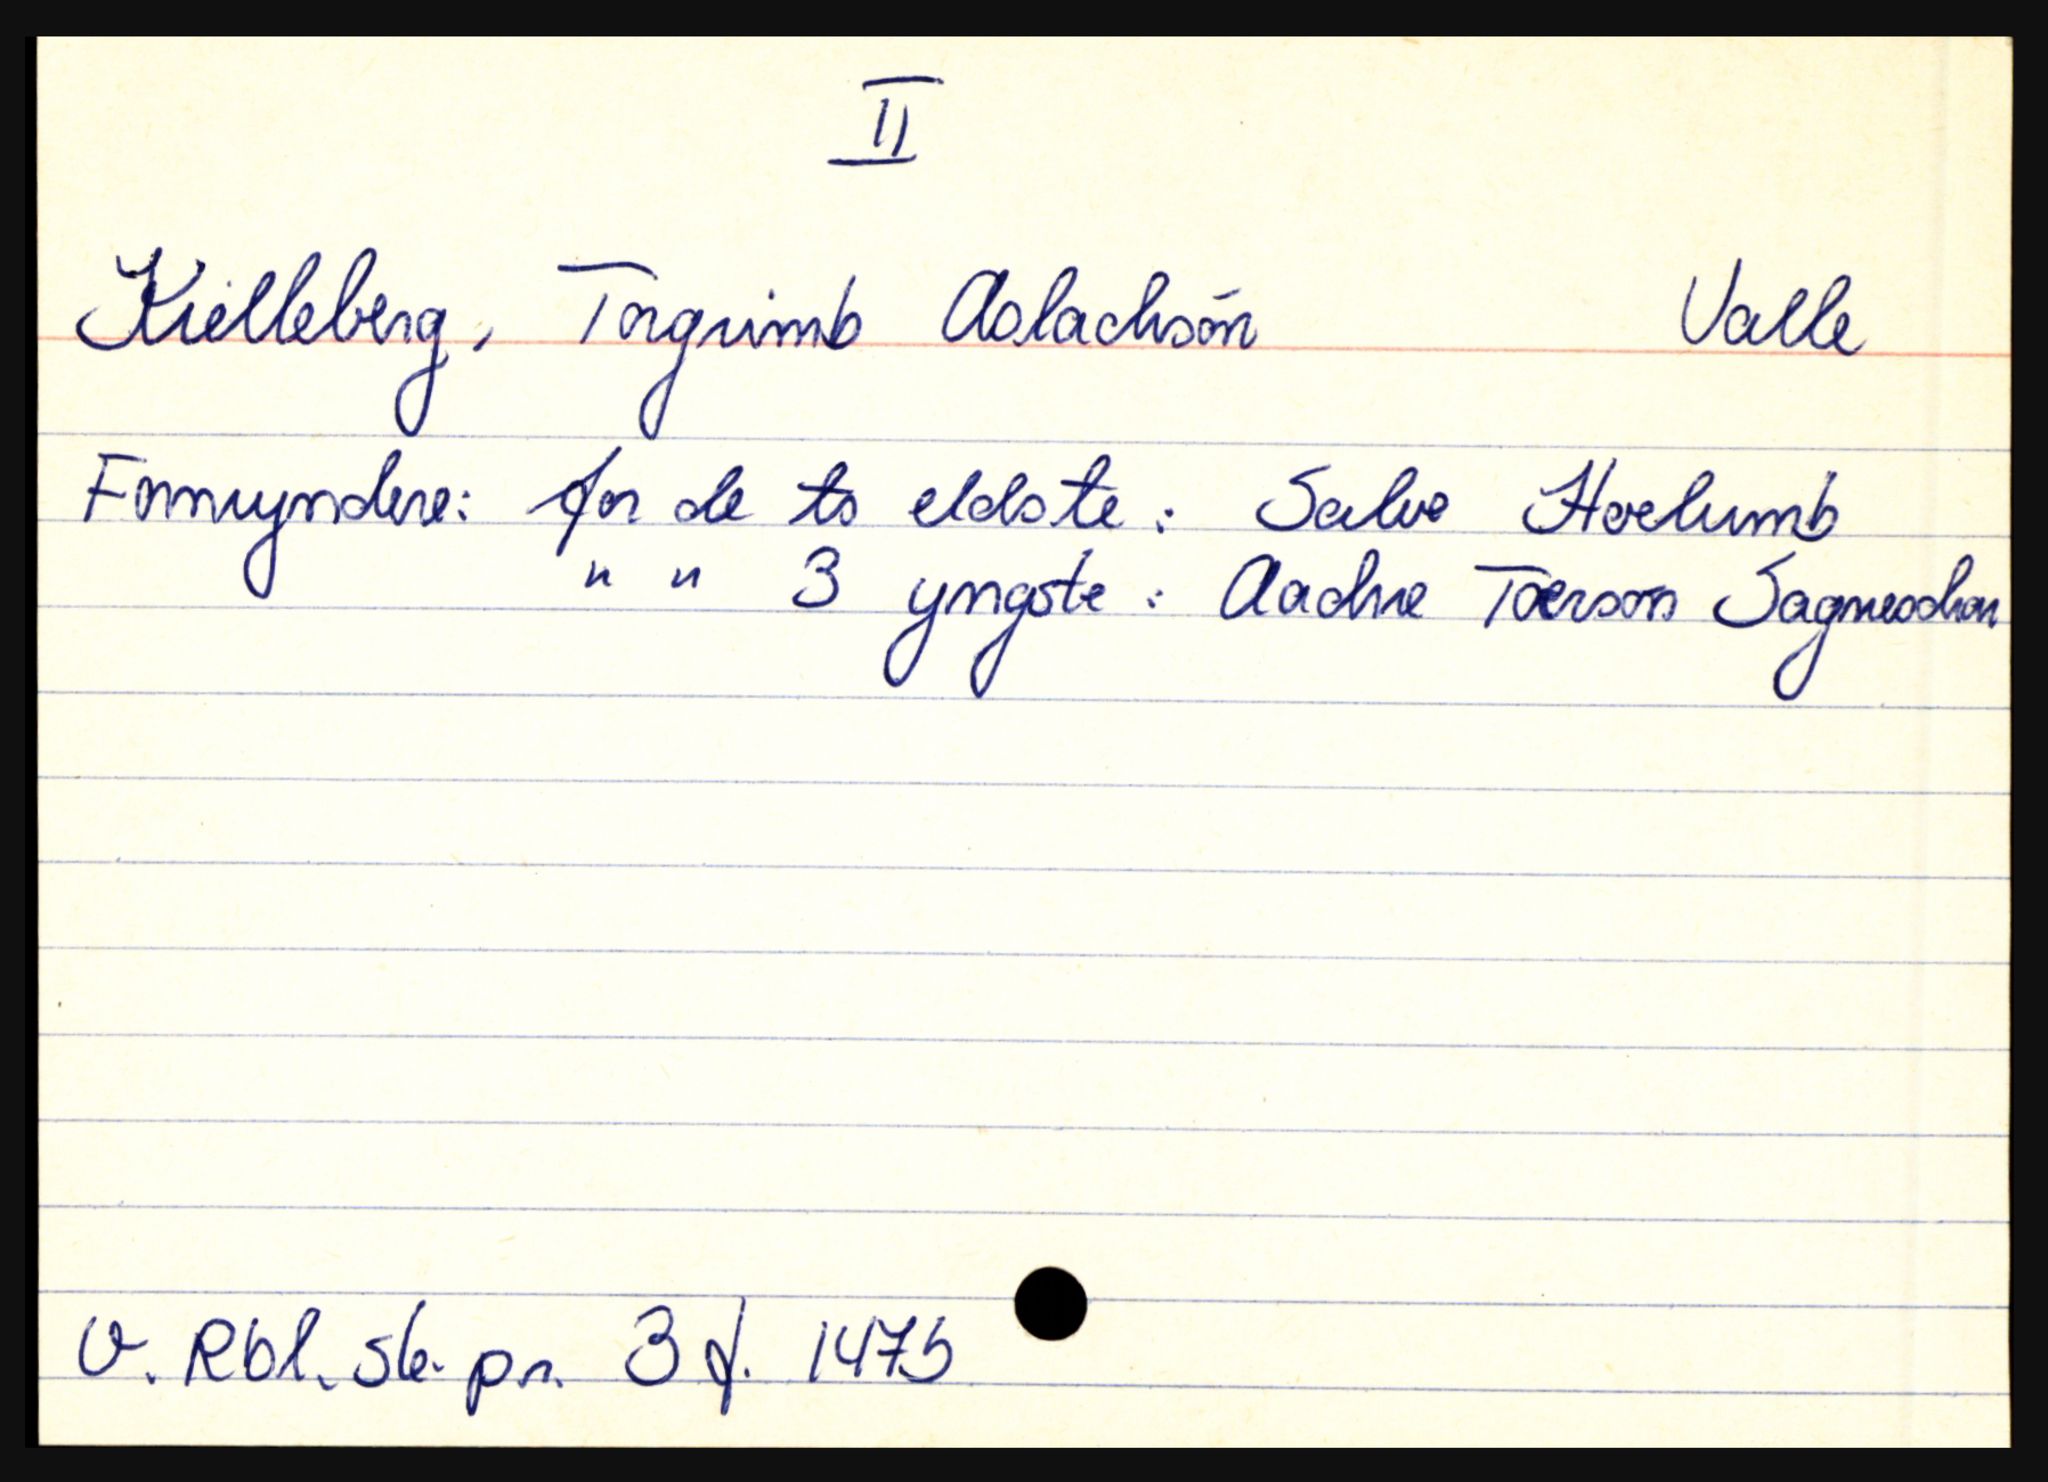 II
Kielleberg, Torgrimb Aslachsøn Valle
Formyndere: for de to eldste: Salve Hoelumb
" " 3 yngste: Aadne Toerson
V. Rbl. sk. pr. 3 f. 147b